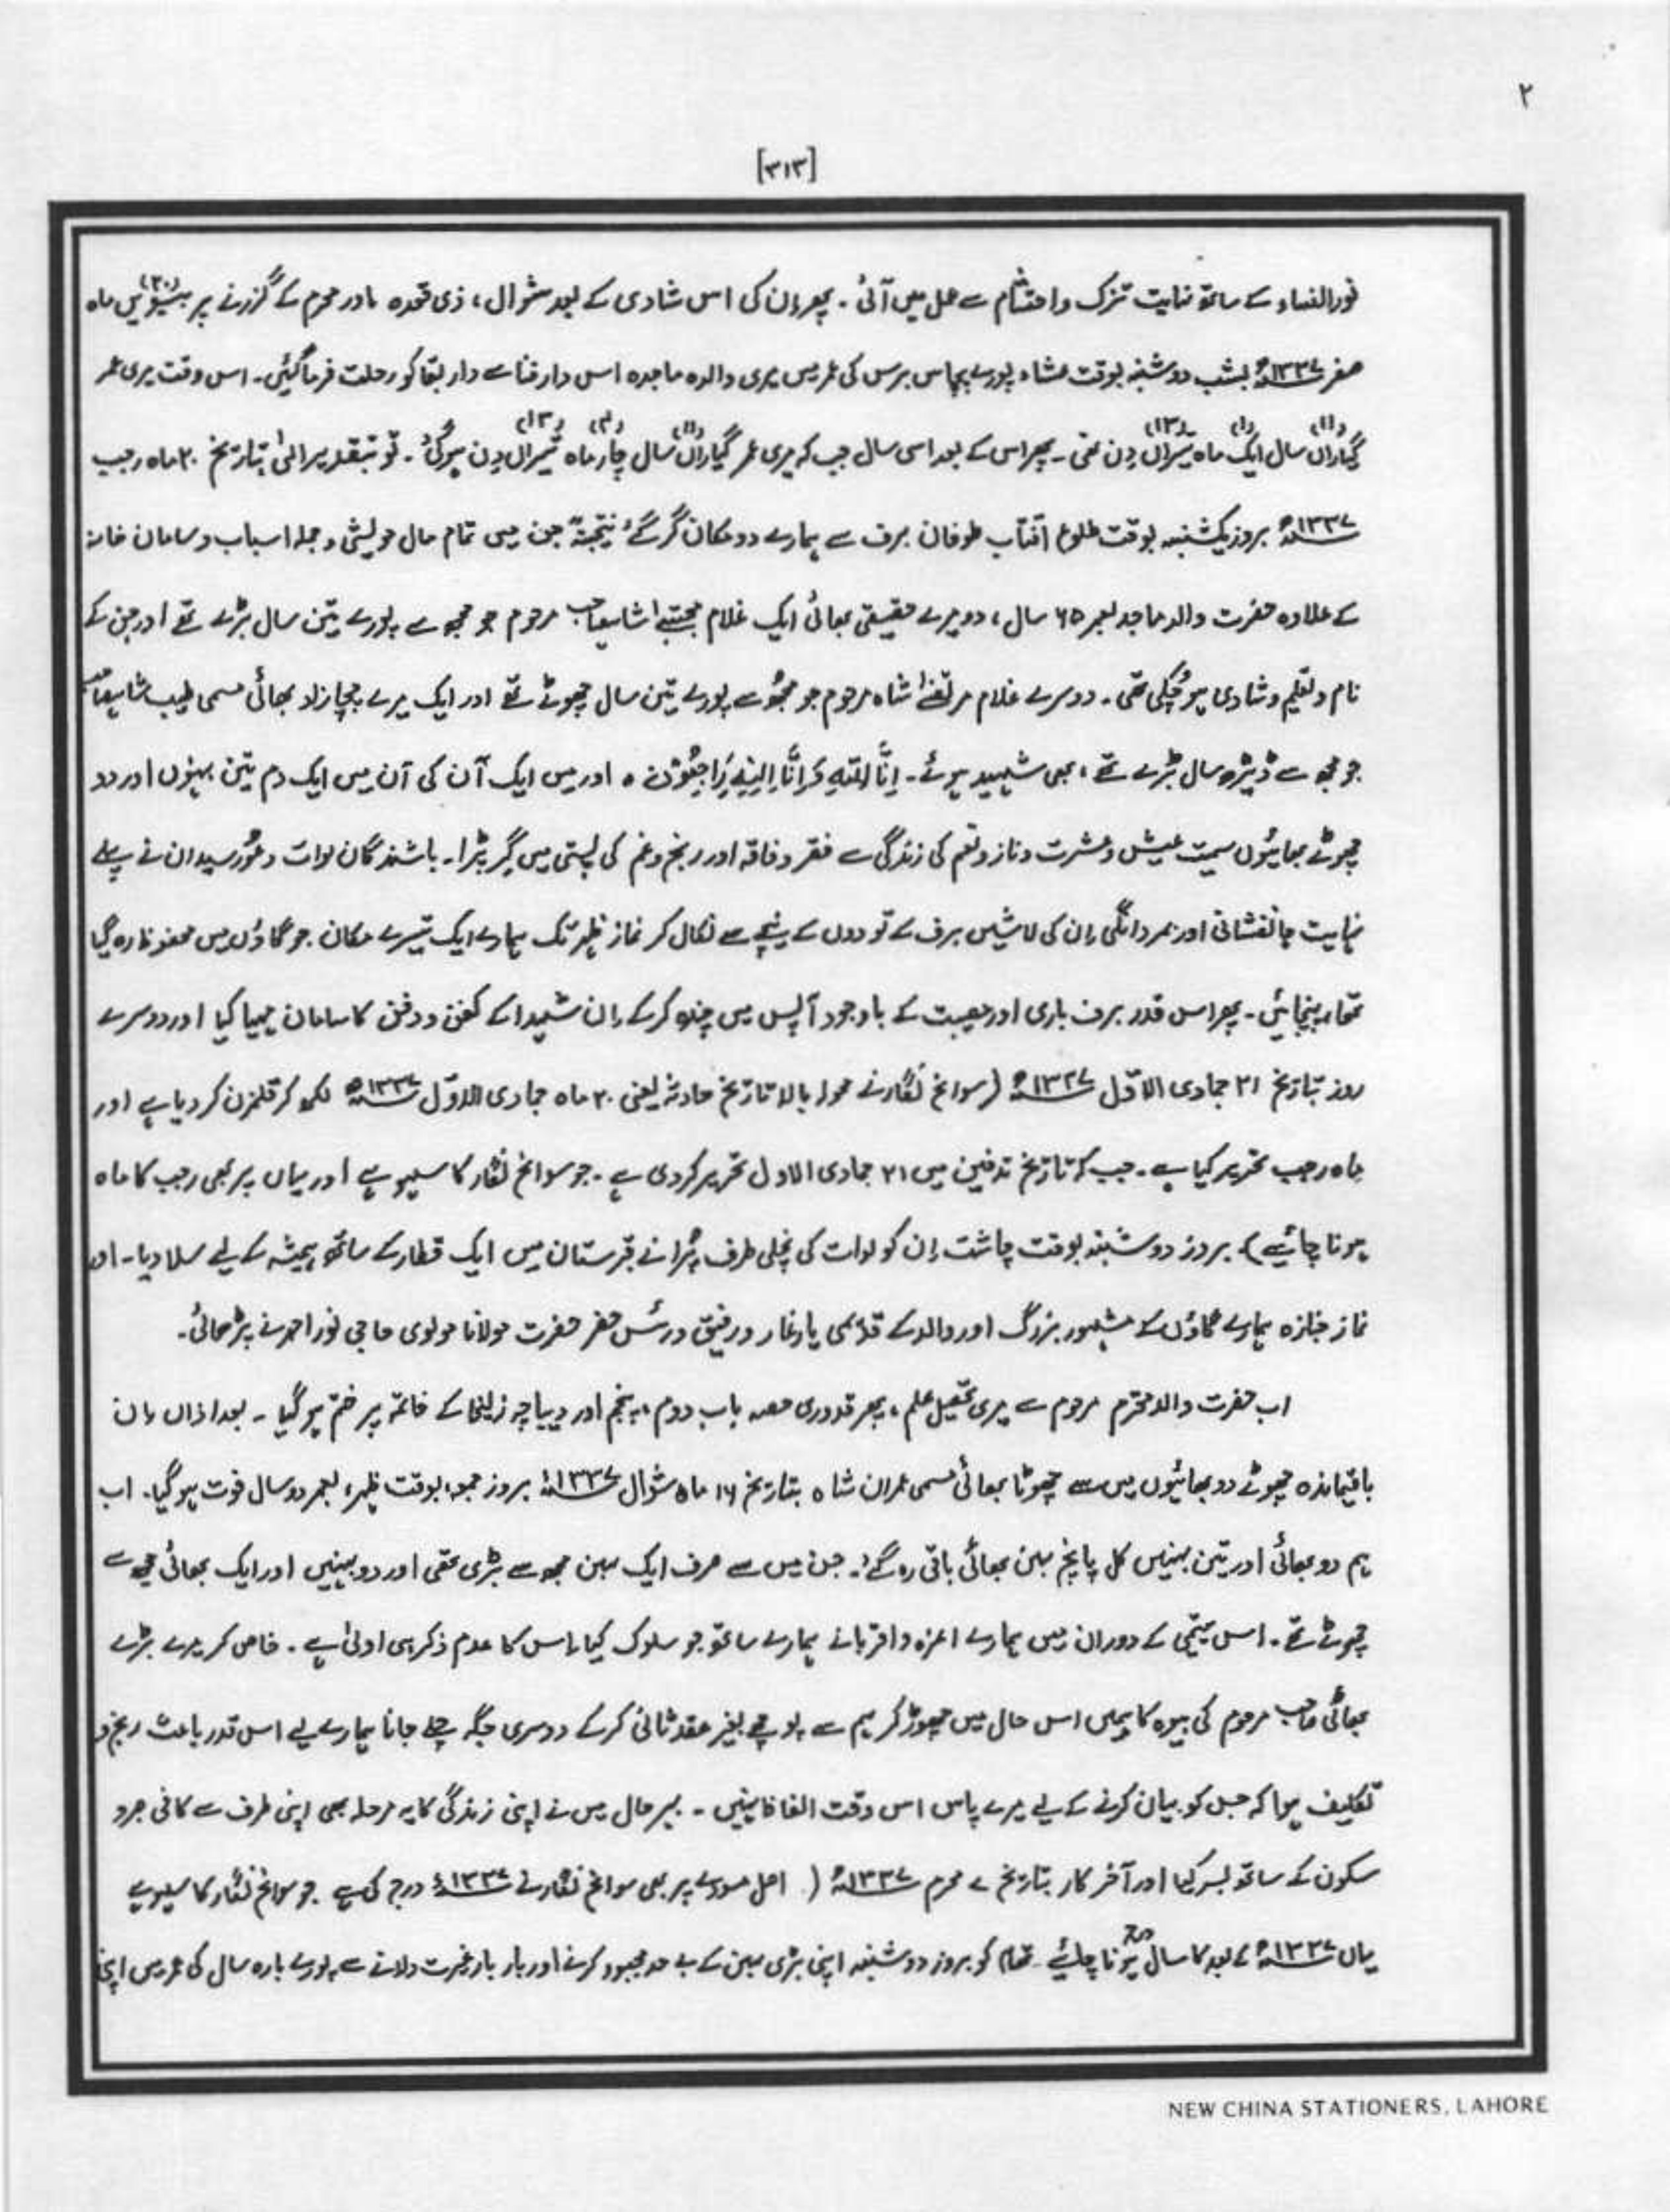 ۲
[۳۱۳]
نورالنساء کے ساتھ نہایت تزک واحتشام سے عمل میں آئی۔ پھر اِن کی اس شادی کے بعد شوال، ذی قعدہ ماہ در محرم کے گزرنے پر بیسویں (۲۰) ماہ
صفر ۱۳۳۷ھ بشب دوشنبہ بوقت عشاء پورے پچاس برس کی عمر میں میری والدہ ماجدہ اس دار فنا سے دار بقا کو رحلت فرما گئیں۔ اس وقت میری عمر
گیاراں (۱۱) سال ایک (۱) ماہ تیراں (۱۳) دن تھی۔ پھر اس کے بعد اسی سال جب کہ میری عمر گیاراں (۱۱) سال چار (۴) ماہ تیراں (۱۳) دن ہوگئ۔ تو بتقدیر الٰہی بتاریخ ۲۰ ماہ رجب
۱۳۳۷ھ بروز یکشنبہ بوقت طلوع آفتاب طوفان برف سے ہمارے دو مکان گر گئے نتیجتہً جن میں تمام مال مویشی و جملہ اسباب و سامان خانہ
کے علاوہ حضرت والد ماجد بعمر ۶۵ سال، دو میرے حقیقی بھائی ایک غلام مجتبےٰ شاہ صاحب مرحوم جو مجھ سے پورے تین سال بڑے تھے اور جن کے
نام و تعلیم و شادی ہو چُکی تھی۔ دوسرے غلام مرتضےٰ شاہ مرحوم جو مجھ سے پورے تین سال چھوٹے تھے اور ایک میرے چچازاد بھائی مسمی طیب شاہ صاحب
جو مجھ سے ڈیڑھ سال بڑے تھے، بھی شہید ہوئے۔ اِنَّا لِلّٰہِ وَاِنَّا اِلَیْہِ رَاجِعُوْنَ ہ اور میں ایک آن کی آن میں ایک دم تین بہنوں اور دو
چھوٹے بھائیوں سمیت عیش و عشرت و ناز و نعم کی زندگی سے فقر و فاقہ اور رنج و غم کی پستی میں گر پڑا۔ باشندگان لوات و غورسیدان نے پہلے
نہایت جانفشانی اور بمردانگی اِن کی لاشیں برف کے تودوں کے نیچے سے نکال کر نماز ظہر تک ہمارے ایک تیسرے مکان جو گاؤں میں محفوظ رہ گیا
تھا، پہنچائیں۔ پھر اس قدر برف باری اور مصیبت کے باوجود آپس میں چندہ کرکے اِن شہیدا کے کفن و دفن کا سامان مہیا کیا اور دوسرے
روز بتاریخ ۲۱ جمادی الاوّل ۱۳۳۷ھ (سوانح نگار نے محولہ بالا تاریخ حادثہ یعنی ۲۰ ماہ جمادی الاوّل ۱۳۳۷ھ لکھ کر قلمزن کر دیا ہے اور
ماہ رجب تحریر کیا ہے۔ جب کہ تاریخ تدفین میں ۲۱ جمادی الاول تحریر کردی ہے۔ جو سوانح نگار کا سہو ہے اور یہاں پر بھی رجب کا ماہ
ہونا چاہئیے)۔ بروز دوشنبہ بوقت چاشت اِن کو لوات کی نچلی طرف پُرانے قبرستان میں ایک قطار کے ساتھ ہمیشہ کے لیے سلا دیا۔ اور
نماز جنازہ ہمارے گاؤں کے مشہور بزرگ اور والد کے قدیمی یارِ غار و رفیق حضر حضرت مولانا مولوی حاجی نور احمد نے پڑھائی۔
اب حضرت والد محترم مرحوم سے میری تحصیل علم، پھر قدوری حصہ باب دوم، پنجم اور دیباچہ زلیخا کے خاتمہ پر ختم ہو گیا۔ بعد ازاں اِن
باقیماندہ چھوٹے دو بھائیوں میں سے چھوٹا بھائی مسمی عمران شاہ بتاریخ ۱۶ ماہ شوال ۱۳۳۷ھ بروز جمعہ، بوقت ظہر، بعمر دو سال فوت ہو گیا۔ اب
ہم دو بھائی اور تین بہنیں کل پانچ بہن بھائی باقی رہ گئے۔ جن میں سے صرف ایک بہن مجھ سے بڑی تھی اور دو بہنیں اور ایک بھائی مجھ سے
چھوٹے تھے۔ اس یتیمی کے دوران میں ہمارے اعزہ و اقربا نے ہمارے ساتھ جو سلوک کیا، اس کا عدم ذکر ہی اولیٰ ہے۔ خاص کر میرے بڑے
بھائی صاحب مرحوم کی بیوہ کا ہمیں اس حال میں چھوڑ کر ہم سے پوچھے بغیر عقد ثانی کرکے دوسری جگہ چلے جانا ہمارے لیے اس قدر باعث رنج و
تکلیف ہوا کہ جس کو بیان کرنے کے لیے میرے پاس اس وقت الفاظ نہیں۔ بہر حال میں نے اپنی زندگی کا یہ مرحلہ بھی اپنی طرف سے کافی صبر و
سکون کے ساتھ بسر کیا اور آخر کار بتاریخ ۷ محرم ۱۳۳۷ھ (۔ اصل مسودے پر بھی سوانح نگار نے ۱۳۳۷ھ درج کی ہے جو سوانح نگار کا سہو ہے
یہاں ۱۳۳۷ھ کے بعد کا سال ہونا چاہئیے تھا) کو بروز دوشنبہ اپنی بڑی بہن کے بے حد مجبور کرنے اور بار بار غیرت دلانے سے پورے بارہ سال کی عمر میں اپنا
NEW CHINA STATIONERS, LAHORE